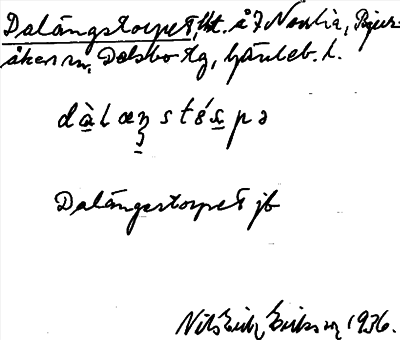 Dalängstorpet, lht. å 7 Nansta, Bjur-
åkers sn, Delsbo tg, Gävleb. l.
dàlæŋstórpə
Dalängstorpet jb
Nils Erik Eriksson 1936.